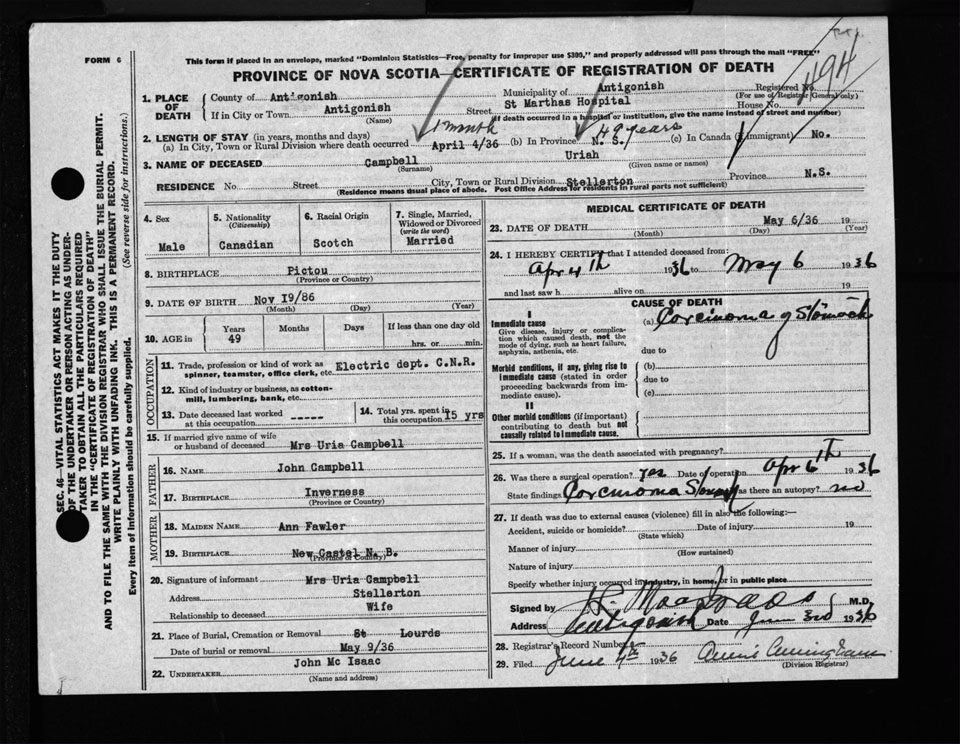 FORM 6
This form if placed in an envelope, marked "Dominion Statistics—Free, penalty for improper use $300," and properly addressed will pass through the mail "FREE"
PROVINCE OF NOVA SCOTIA—CERTIFICATE OF REGISTRATION OF DEATH
494
1. PLACE OF DEATH
County of Antigonish Municipality of Antigonish Registered No.
(For use of Registrar General only)
If in City or Town Antigonish Street St Marthas Hospital House No.
(Name) (If death occurred in a hospital or institution, give the name instead of street and number)
2. LENGTH OF STAY (in years, months and days) 1 month 49 years
(a) In City, Town or Rural Division where death occurred April 4/36 (b) In Province N. S. (c) In Canada (if immigrant) No.
3. NAME OF DECEASED Campbell Uriah
(Surname) (Given name or names)
RESIDENCE No. Street City, Town or Rural Division Stellerton Province N.S.
(Residence means usual place of abode. Post Office Address for residents in rural parts not sufficient)
4. Sex
Male
5. Nationality
(Citizenship)
Canadian
6. Racial Origin
Scotch
7. Single, Married, Widowed or Divorced
(write the word)
Married
8. BIRTHPLACE Pictou
(Province or Country)
9. DATE OF BIRTH Nov 19/86
(Month) (Day) (Year)
10. AGE in
Years Months Days If less than one day old
49 hrs. or min.
OCCUPATION
11. Trade, profession or kind of work as spinner, teamster, office clerk, etc. Electric dept. C.N.R.
12. Kind of industry or business, as cotton-mill, lumbering, bank, etc.
13. Date deceased last worked at this occupation -----
14. Total yrs. spent in this occupation 15 yrs
15. If married give name of wife or husband of deceased Mrs Uria Campbell
FATHER
16. NAME John Campbell
17. BIRTHPLACE Inverness
(Province or Country)
MOTHER
18. MAIDEN NAME Ann Fawler
19. BIRTHPLACE New Castel N. B.
(Province or Country)
20. Signature of informant Mrs Uria Campbell
Address Stellerton
Relationship to deceased Wife
21. Place of Burial, Cremation or Removal St Lourds
Date of burial or removal May 9/36
22. UNDERTAKER John Mc Isaac
(Name and address)
MEDICAL CERTIFICATE OF DEATH
23. DATE OF DEATH May 6/36 19
(Month) (Day) (Year)
24. I HEREBY CERTIFY that I attended deceased from:
Apr 4th 1936 to May 6 1936
and last saw h alive on 19
CAUSE OF DEATH
I
Immediate cause (a) Corcinoma of Stomach
Give disease, injury or complication which caused death, not the mode of dying, such as heart failure, asphyxia, asthenia, etc.
due to
Morbid conditions, if any, giving rise to immediate cause (stated in order proceeding backwards from immediate cause).
(b)
due to
(c)
II
Other morbid conditions (if important) contributing to death but not causally related to immediate cause.
25. If a woman, was the death associated with pregnancy?
26. Was there a surgical operation? yes Date of operation Apr 6th 1936
State findings Corcinoma Stomach Was there an autopsy? no
27. If death was due to external causes (violence) fill in also the following:—
Accident, suicide or homicide? Date of injury 19
(State which)
Manner of injury
(How sustained)
Nature of injury
Specify whether injury occurred in industry, in home, or in public place
Signed by M.D.
Address Antigonish Date June 3rd 1936
28. Registrar's Record Number
29. Filed June 4th 1936 Annie Cunningham
(Division Registrar)
SEC. 46—VITAL STATISTICS ACT MAKES IT THE DUTY
OF THE UNDERTAKER OR PERSON ACTING AS UNDER-
TAKER TO OBTAIN ALL THE PARTICULARS REQUIRED
IN THE "CERTIFICATE OF REGISTRATION OF DEATH"
AND TO FILE THE SAME WITH THE DIVISION REGISTRAR WHO SHALL ISSUE THE BURIAL PERMIT.
WRITE PLAINLY WITH UNFADING INK. THIS IS A PERMANENT RECORD.
Every item of information should be carefully supplied. (See reverse side for instructions.)